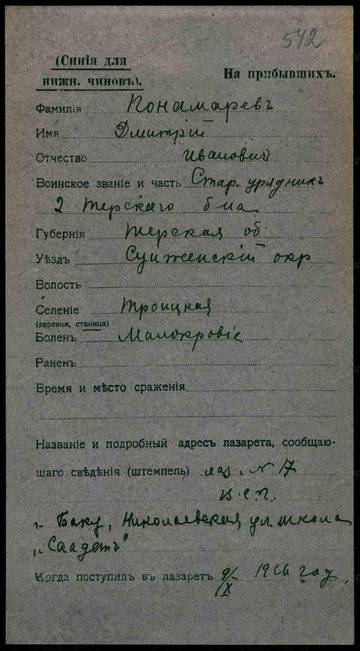 542
(Синія для
нижн. чиновъ).
На прибывшихъ.
Фамилія Конамаревъ
Имя Дмитрій
Отчество Ивановичъ
Воинское званіе и часть Стар. урядникъ
2 Терскаго б-на
Губернія Терская об
Уѣздъ Сунженскій окр
Волость
Селеніе Троицкая
(деревня, станица)
Боленъ Малокровіе
Раненъ
Время и мѣсто сраженія
Названіе и подробный адресъ лазарета, сообщаю-
щаго свѣдѣнія (штемпель) лаз. № 17
в.с.г.
г. Баку, Николаевская ул. школа
„Саадетъ"
Когда поступилъ въ лазаретъ 9/IX 1916 год.